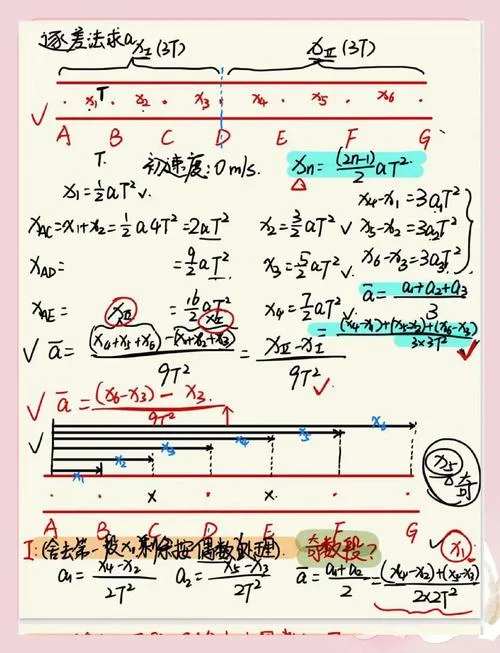 逐差法求a xⅠ(3T) xⅡ(3T)
x₁ T x₂ x₃ x₄ x₅ x₆
√ A B C D E F G
T. 初速度:0m/s. xn=(2n-1)/2 aT²
x₁=½aT² √. x₄-x₁=3a₁T²
xAC=x₁+x₂=½a4T²=2aT² x₂=3/2aT² √ x₅-x₂=3a₂T²
xAD= =9/2aT² x₃=5/2aT² √. x₆-x₃=3a₃T²
xAE= =16/2aT² x₄=7/2aT² √ ā=(a₁+a₂+a₃)/3
xⅡ xⅠ =((x₄-x₁)+(x₅-x₂)+(x₆-x₃))/(3×3T²) √
√ ā=((x₄+x₅+x₆)-(x₁+x₂+x₃))/9T²=(xⅡ-xⅠ)/9T² √
√ ā=((x₆-x₃)-x₃)/9T²
√ x₁ x₂ x₃ x₄ x₅ x₆
x₅ 奇
A B C D E F G
Ⅰ:(舍去第一段x₁剩余按偶数处理). 奇数段? √ x₁
a₁=(x₄-x₂)/2T² a₂=(x₅-x₃)/2T² ā=(a₁+a₂)/2=((x₄-x₂)+(x₅-x₃))/(2×2T²)